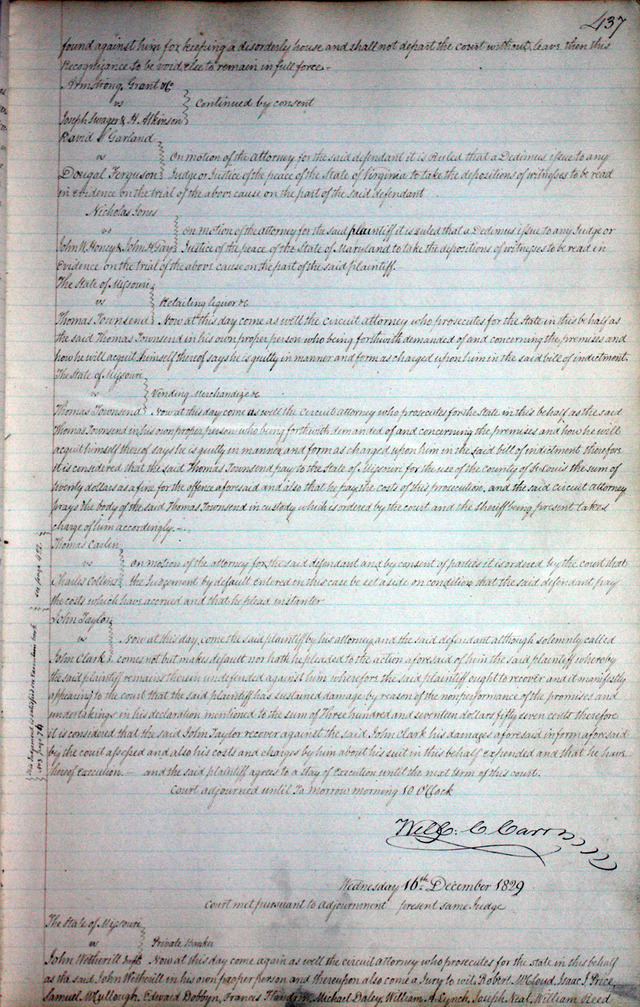 437
found against him for keeping a disorderly house and shall not depart the court without leave then this
Recognizance to be void else to remain in full force.
Armstrong, Grant &c
vs Continued by consent
Joseph Swager & H. Atkinson
David S Garland
vs On motion of the attorney for the said defendant it is Ruled that a Dedimus issue to any
Dougal Ferguson Judge or Justice of the peace of the State of Virginia to take the depositions of witnesses to be read
in evidence on the trial of the above cause on the part of the said defendant
Nicholas Jones
vs on motion of the attorney for the said plaintiff it is ruled that a Dedimus issue to any Judge or
John M. Honey & John H Gay Justice of the peace of the State of Maryland to take the depositions of witnesses to be read in
Evidence on the trial of the above cause on the part of the said plaintiff.
The State of Missouri
vs Retailing liquor &c
Thomas Townsend Now at this day come as well the circuit attorney who prosecutes for the State in this behalf as
the said Thomas Townsend in his own proper person who being forthwith demanded of and concerning the premises and
how he will acquit himself thereof says he is guilty in manner and form as charged upon him in the said bill of indictment.
The State of Missouri
vs Vending Merchandize &c
Thomas Townsend Now at this day come as well the circuit attorney who prosecutes for the state in this behalf as the said
Thomas Townsend in his own proper person who being forthwith demanded of and concerning the premises and how he will
acquit himself thereof says he is guilty in manner and form as charged upon him in the said bill of indictment therefore
it is considered that the said Thomas Townsend pay to the State of Missouri for the use of the county of St Louis the sum of
twenty dollars as a fine for the offence aforesaid and also that he pay the costs of this prosecution. and the said circuit attorney
prays the body of the said Thomas Townsend in custody which is ordered by the court and the Sheriff being present takes
charge of him accordingly.
Thomas Carlin
vs on motion of the attorney for the said defendant and by consent of parties it is ordered by the court that
Charles Collins the Judgement by default entered in this case be set aside on condition that the said defendant pay
the costs which have accrued and that he plead instanter
John Taylor
vs Now at this day come the said plaintiff by his attorney and the said defendant although solemnly called
John Clark comes not but makes default nor hath he pleaded to the action aforesaid of him the said plaintiff whereby
the said plaintiff remains therein undefended against him wherefore the said plaintiff ought to recover and it manifestly
appearing to the court that the said plaintiff has sustained damage by reason of the nonperformance of the promises and
undertakings in his declaration mentioned to the sum of Three hundred and seventeen dollars fifty seven cents therefore
it is considered that the said John Taylor recover against the said John Clark his damages aforesaid in form aforesaid
by the court assessed and also his costs and charges by him about his suit in this behalf expended and that he have
thereof execution. — and the said plaintiff agrees to a stay of execution until the next term of this court.
Court adjourned until To morrow morning 10 OClock
Will. C Carr
Wednesday 16th December 1829
Court met pursuant to adjournment present same Judge
The State of Missouri
vs Private Banker
John Witherill Now at this day come again as well the circuit attorney who prosecutes for the state in this behalf
as the said John Witherill in his own proper person and thereupon also come a Jury to wit, Robert McCloud, Isaac J Price,
Samuel McCullough, Edward Dobyn, Francis Michael Daley, William A. Lynch, Joseph Neal, William Reed